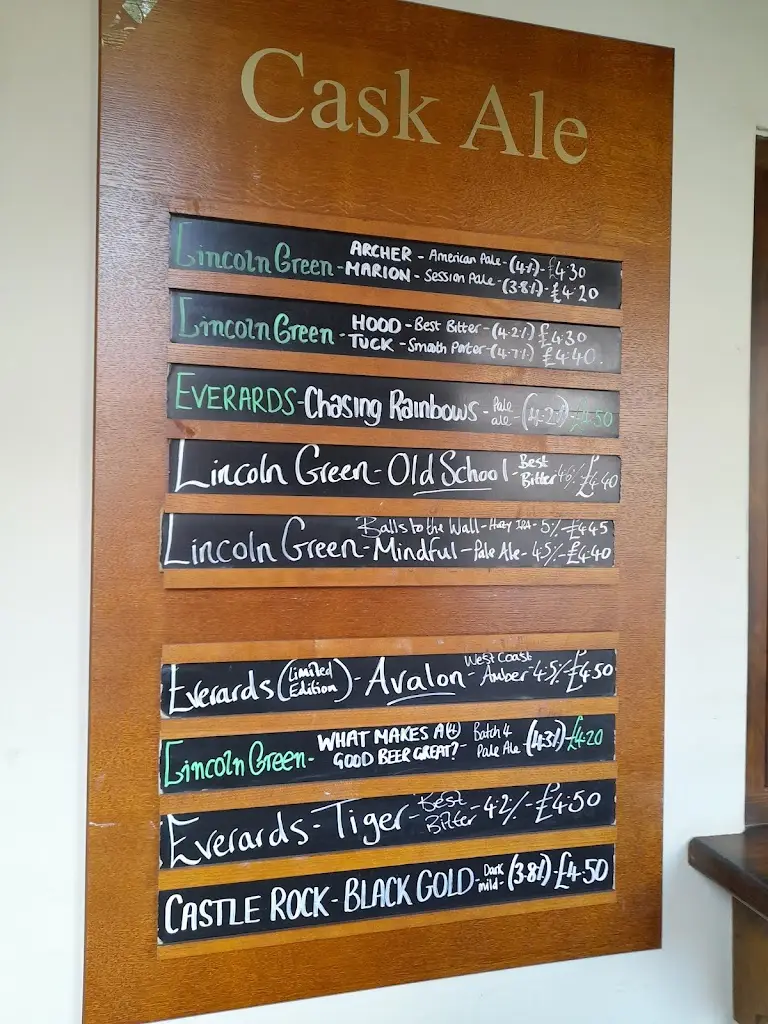 Cask Ale
Lincoln Green - ARCHER - American Pale - (4%) - £4.30
MARION - Session Pale - (3.8%) - £4.20
Lincoln Green - HOOD - Best Bitter - (4.2%) £4.30
TUCK - Smooth Porter - (4.7%) £4.40
EVERARDS - Chasing Rainbows - Pale ale - (4.2%) - £4.50
Lincoln Green - Old School - Best Bitter £4.40
Balls to the Wall - Hazy IPA - 5% - £4.45
Lincoln Green - Mindful - Pale Ale - 4.5% - £4.40
Everards (Limited Edition) - Avalon - West Coast Amber - 4.5% - £4.50
Lincoln Green - WHAT MAKES A (4) GOOD BEER GREAT? - Batch 4 Pale Ale (4.3%) - £4.20
Everards - Tiger - Best Bitter - 4.2% - £4.50
CASTLE ROCK - BLACK GOLD - Dark mild - (3.8%) - £4.50